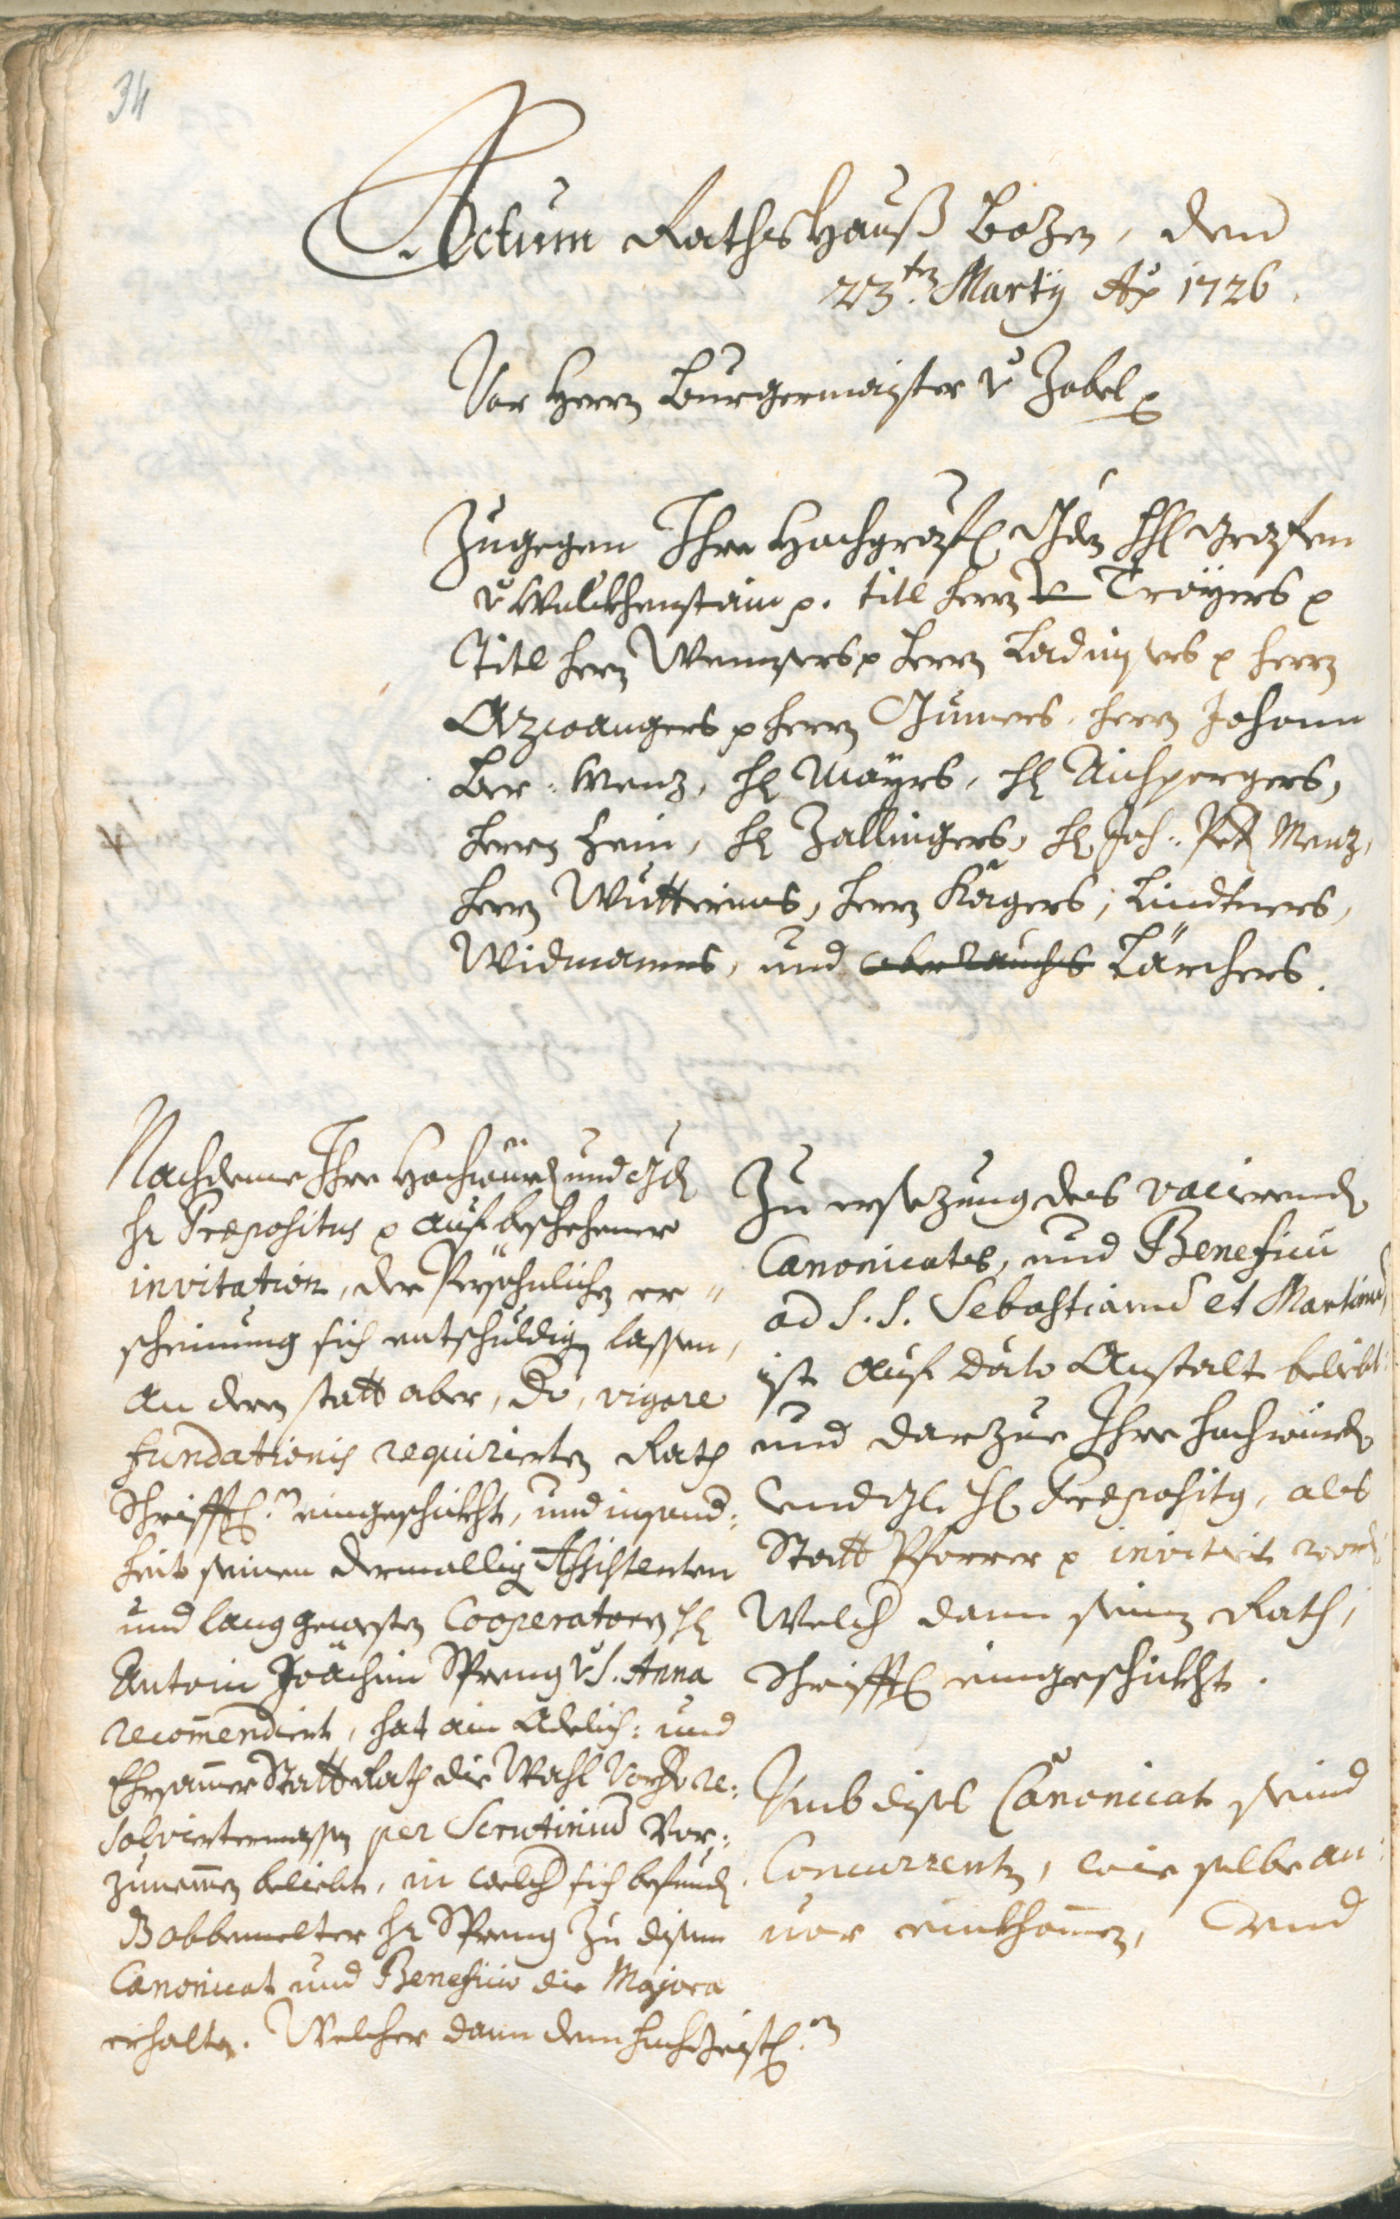 34
Actum Rathshauß Bozen, den
23.ten Martÿ Ao 1726.
Vor Herrn Burgermaister v Zobel p
Zugegen Ihre Hochgräfl Gdn Hl Grafen
v Wolckhenstain p. titl herrn v Troÿers p
Titl herrn Wenzers p herrn Ladinsers p herrn
Azwangers p herrn Gumers, herrn Johann
Ber: Menz, hl Maÿrs, hl Aichpergers,
herrn hein, hl Zallingers, hl Joh: Pet Menz,
herrn Mutterins, herrn Kägers, Lindtners,
Widmanns, und oberrauchs Lärchers.
Nachdeme Ihre Hochwürd und Gd
hr Præpositus p auf beschehener
invitation, der Persöhnlichen er=
scheinung sich entschuldigen lassen,
an deren statt aber, do, vigore
fundationis requirierten Rath
Schrifftl.n eingeschickht, und insond:
heit seinen dermalligen Assistenten
und lang gewesten Cooperatorn hl
Antoni Joachim Spreng v S. Anna
recommendiert, hat ain Adelich: und
Ehrsammer Statt Rath die Wahl Vorhero re:
solviertermassen per Scrutinium Vor:
zunemmen beliebt, in welch sich befund
Bobbemelter hr Spreng zu disem
Canonicat und Beneficio die Majora
erhalten. Welcher dann dem hochgeistl.n
Zu ersezung des vacierend
Canonicates, und Beneficii
ad S. S. Sebastianum et Martinum,
ist auf dato Anstalt beliebt:
und darzue Ihre hochwürd
und Gd. Hl Præpositg, als
Statt Pfarrer p invitiert word
Welch dann seinen Rath,
Schrifftl eingeschickht.
Umb dises Canonicat seind
Concurrenten, wie selbe an:
vor einkhommen, und